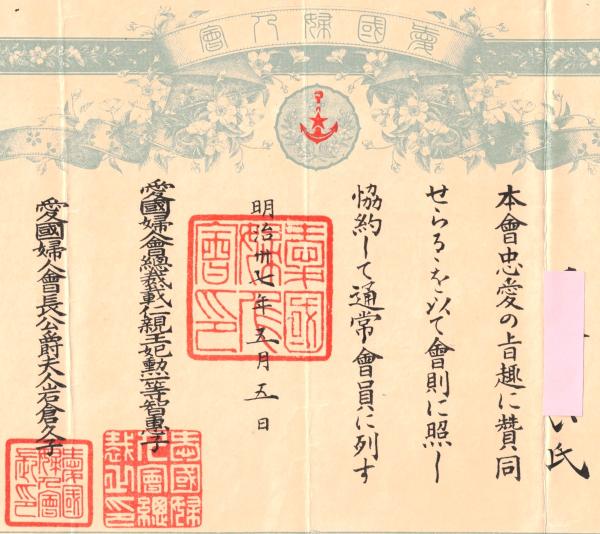 愛國婦人會
氏
本會忠愛の旨趣に贊同
せらるゝを以て會則に照し
協約して通常會員に列す
明治卅七年五月五日
愛國婦人會總裁載仁親王妃勲一等智惠子
愛國婦人會長公爵夫人岩倉久子
愛國婦人會印
愛國婦人會總裁之印
愛國婦人會長之印